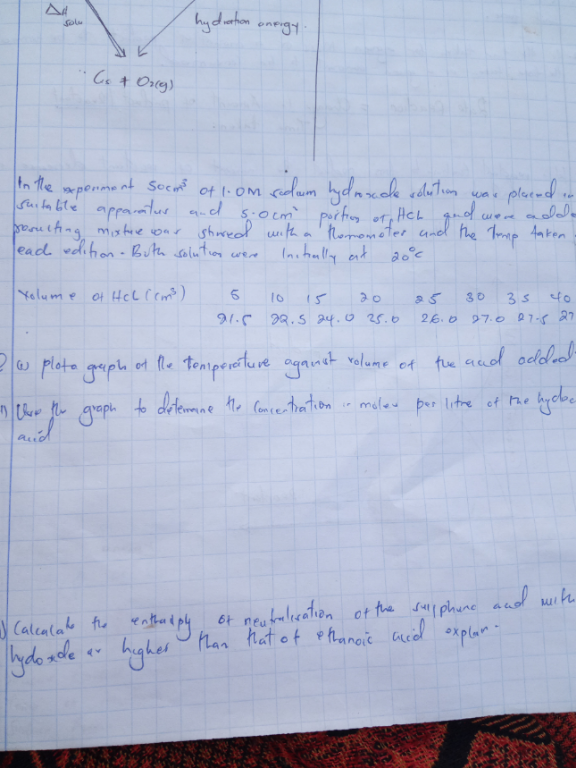 ΔH
soln
hydration energy.
∵ Cc + O2(g)
In the experiment 50cm³ of 1.0M sodium hydroxide solution was placed in
suitable apparatus and 5.0cm³ portion of HCl and were adde
resulting mixture was stirred with a thermometer and the Temp taken
each edition. Both solution were Initially at 20°c
Volume of HCl (cm³) 5 10 15 20 25 30 35 40
21.5 22.5 24.0 25.0 26.0 27.0 27.5 27
plot a graph of the Temperature against volume of the acid added
Use the graph to determine the Concentration moles per litre of the hydoc
acid
Calculate the enthalpy of neutralisation of the sulphuric acid with
hydoxide higher than that of ethanoic acid explan.